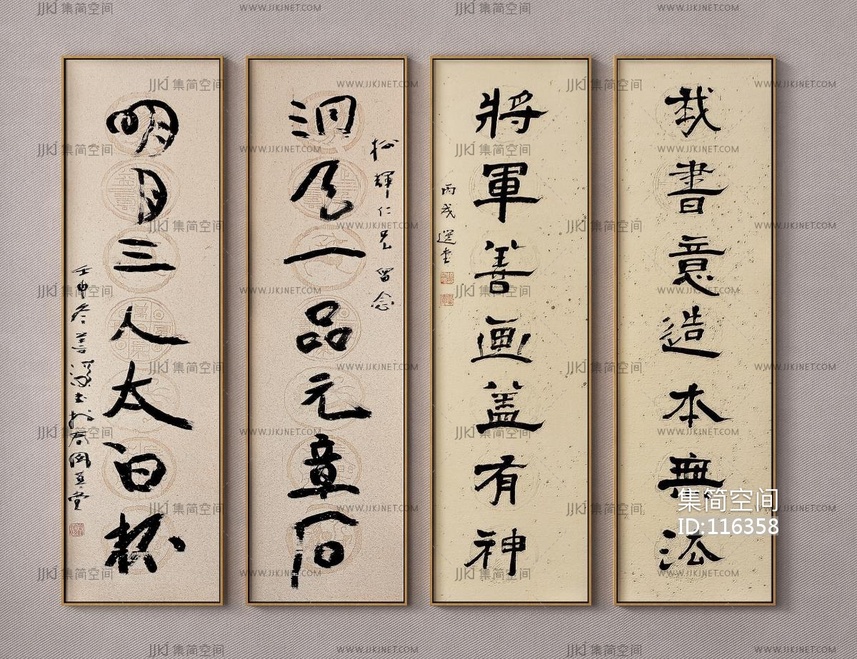 我書意造本無法
將軍善画盖有神
丙戌 選堂
洞天一品元章石
輝仁兄留念
明月三人太白杯
壬申冬善深
集简空间
ID:116358
集简空间
WWW.JJKJNET.COM